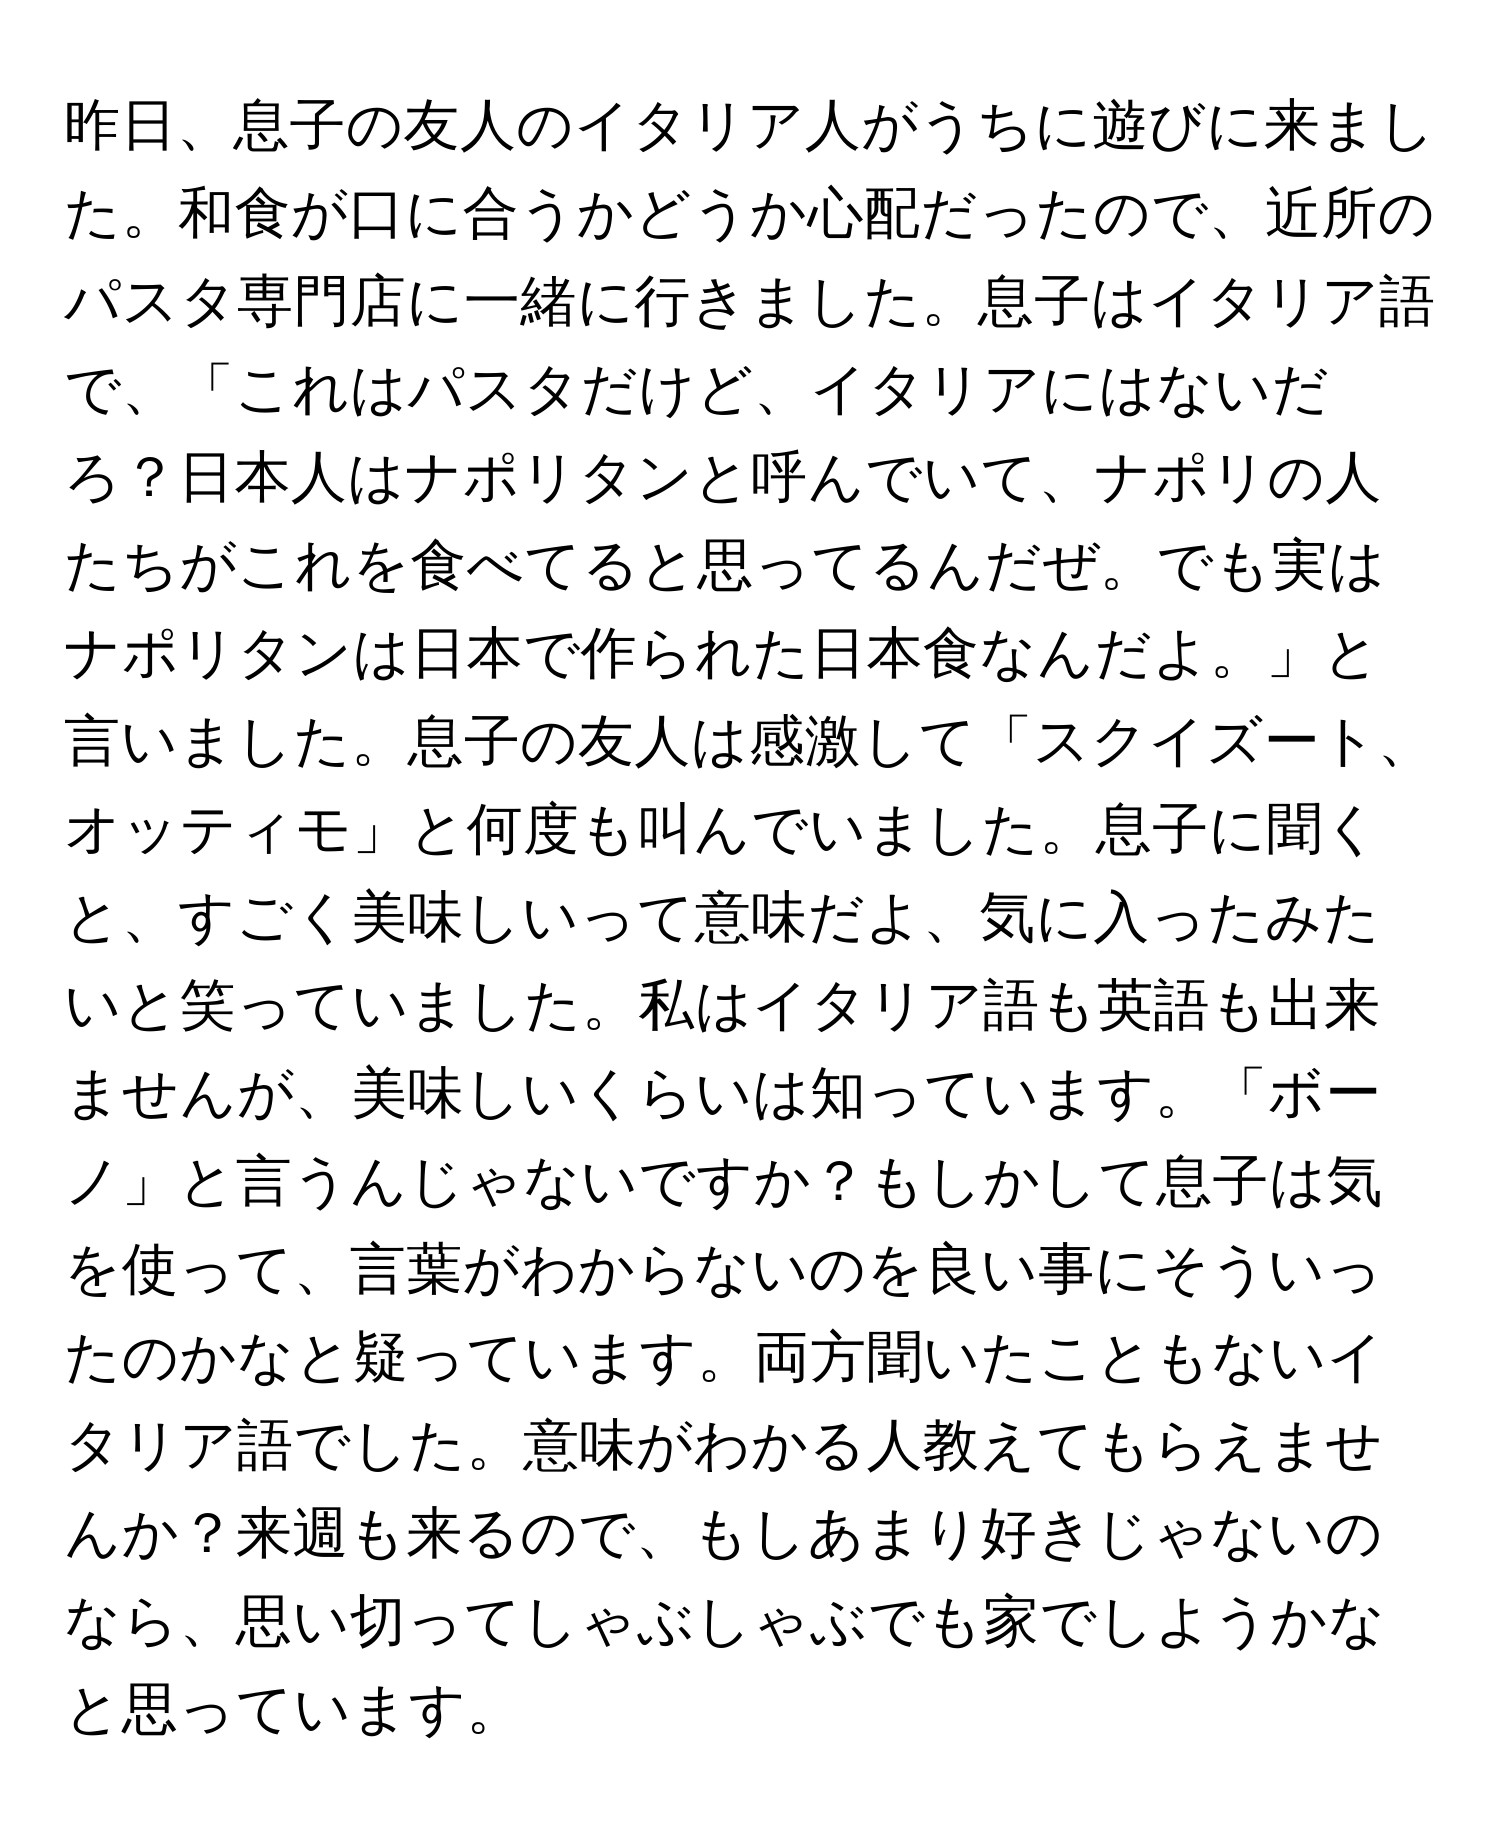 昨日、息子の友人のイタリア人がうちに遊びに来まし
た。和食が口に合うかどうか心配だったので、近所の
パスタ専門店に一緒に行きました。息子はイタリア語
で、「これはパスタだけど、イタリアにはないだ
ろ？日本人はナポリタンと呼んでいて、ナポリの人
たちがこれを食べてると思ってるんだぜ。でも実は
ナポリタンは日本で作られた日本食なんだよ。」と
言いました。息子の友人は感激して「スクイズート、
オッティモ」と何度も叫んでいました。息子に聞く
と、すごく美味しいって意味だよ、気に入ったみた
いと笑っていました。私はイタリア語も英語も出来
ませんが、美味しいくらいは知っています。「ボー
ノ」と言うんじゃないですか？もしかして息子は気
を使って、言葉がわからないのを良い事にそういっ
たのかなと疑っています。両方聞いたこともないイ
タリア語でした。意味がわかる人教えてもらえませ
んか？来週も来るので、もしあまり好きじゃないの
なら、思い切ってしゃぶしゃぶでも家でしようかな
と思っています。